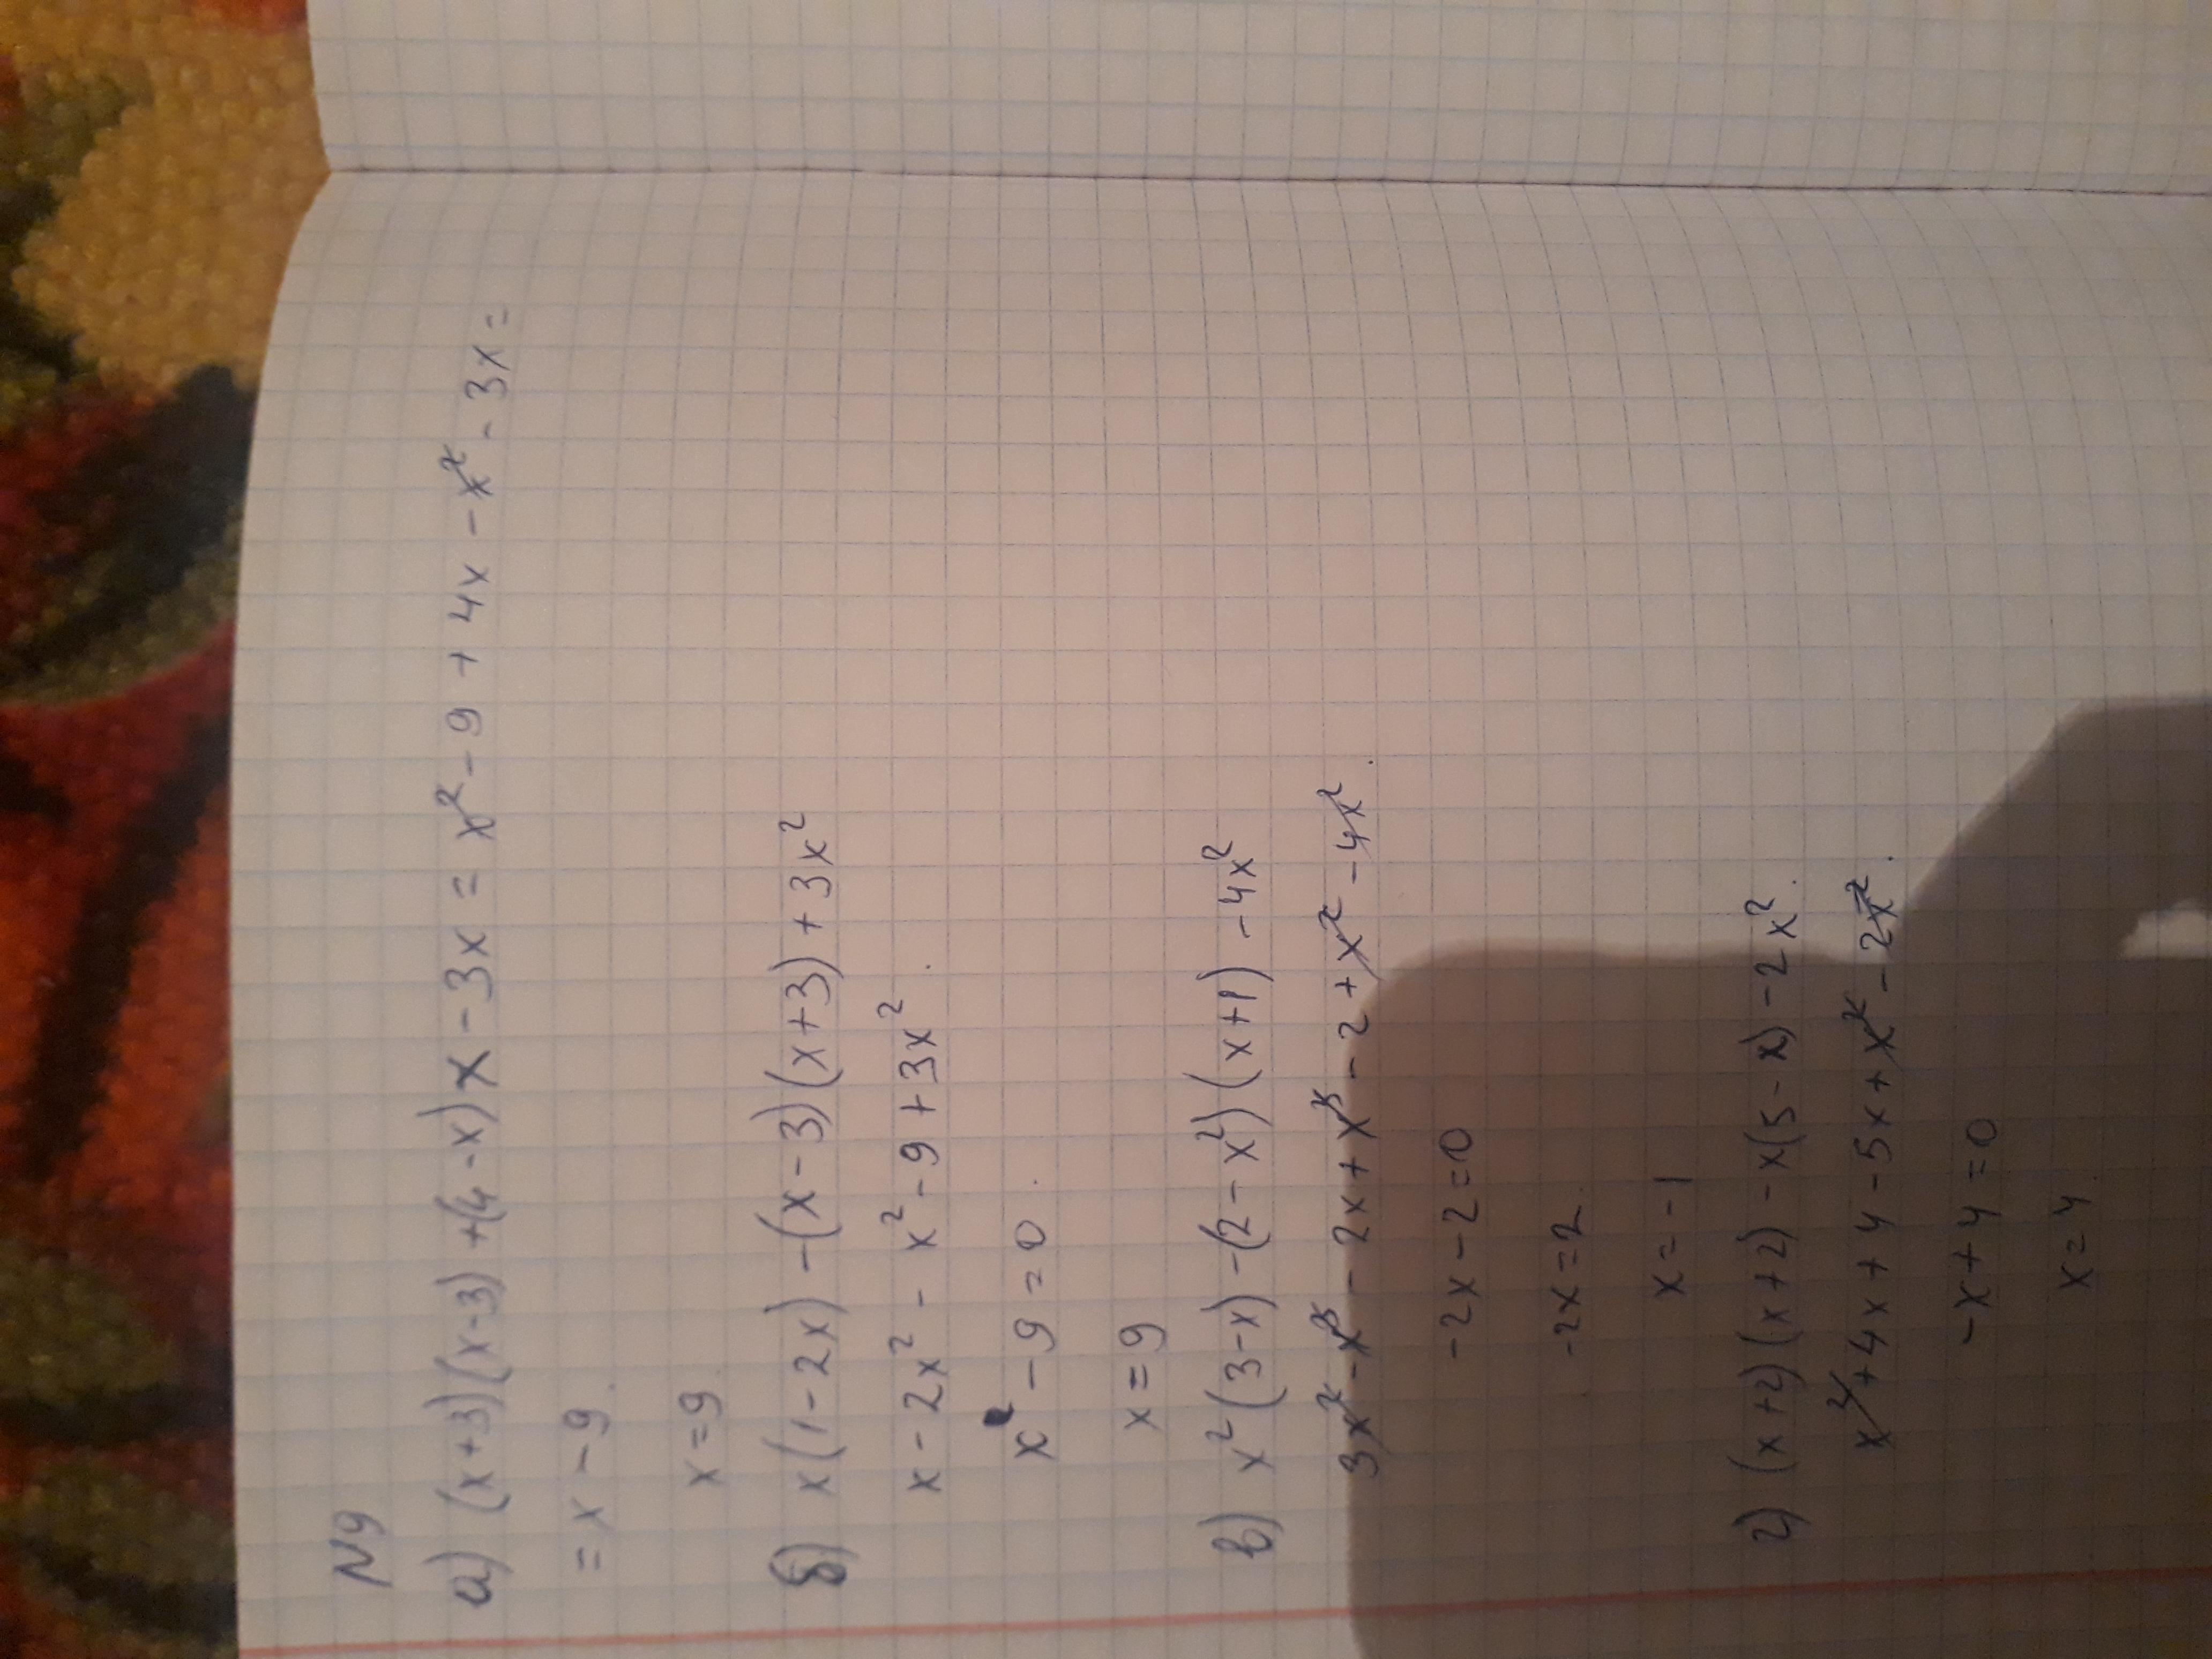 N9
а) (x+3)(x-3)+(4-x)x-3x=x²-9+4x-x²-3x=
=x-9.
x=9.
б) x(1-2x)-(x-3)(x+3)+3x²
x-2x²-x²-9+3x².
x-9=0.
x=9
в) x²(3-x)-(2-x²)(x+1)-4x²
3x²-x³-2x+x³-2+x²-4x².
-2x-2=0
-2x=2.
x=-1
г) (x+2)(x+2)-x(5-x)-2x².
x²+4x+4-5x+x²-2x².
-x+4=0
x=4.